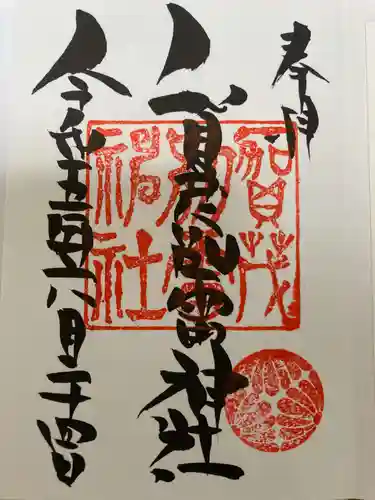 奉拝
賀茂別雷神社
令和五年六月二十四日
賀茂
別雷
神社